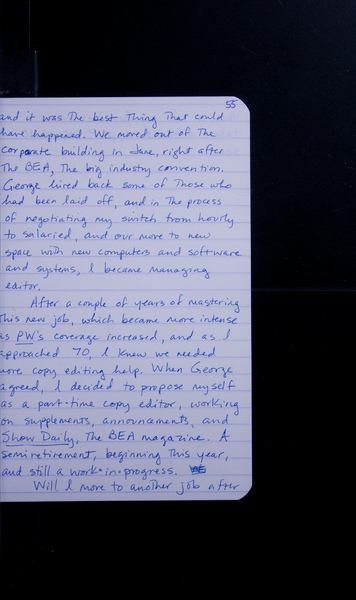 55
and it was The best Thing That could
have happened. We moved out of The
corporate building in June, right after
The BEA, The big industry convention.
George hired back some of Those who
had been laid off, and in The process
of negotiating my switch from hourly
to salaried, and our move to new
space with new computers and software
and systems, I became managing
editor.
After a couple of years of mastering
This new job, which became more intense
as PW's coverage increased, and as I
approached 70, I knew we needed
more copy editing help. When George
agreed, I decided to propose myself
as a part-time copy editor, working
on supplements, announcements, and
Show Daily, The BEA magazine. A
semiretirement, beginning This year,
and still a work-in-progress.
Will I move to another job after